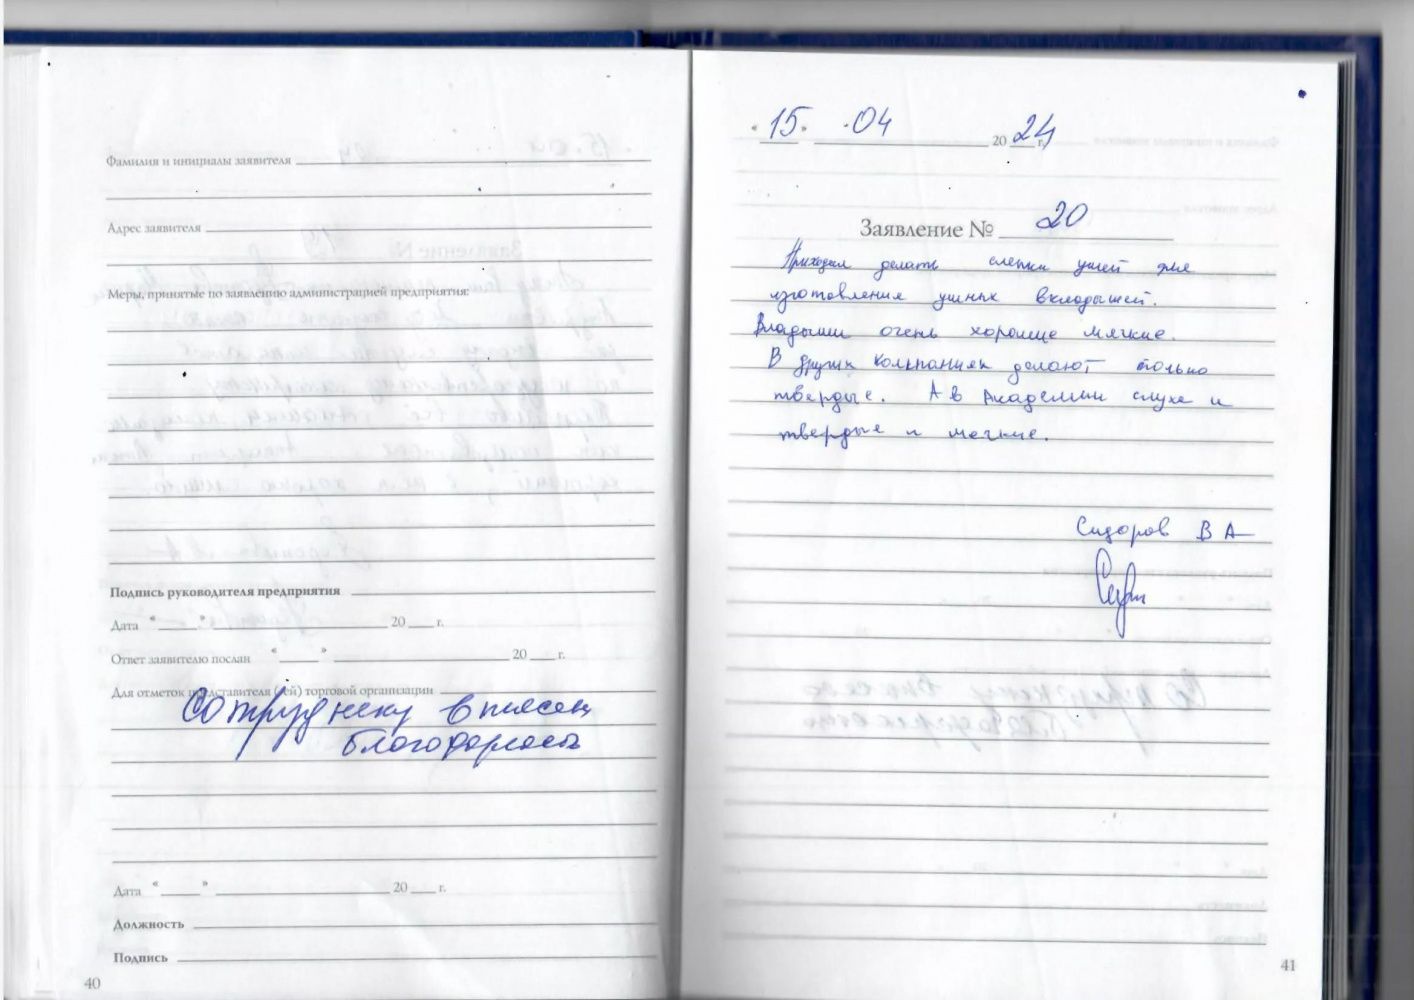 Фамилия и инициалы заявителя
Адрес заявителя
Меры, принятые по заявлению администрацией предприятия:
Подпись руководителя предприятия
Дата « » 20 г.
Ответ заявителю послан « » 20 г.
Для отметок представителя (ей) торговой организации
Сотруднеку внесен
благодарность
Дата « » 20 г.
Должность
Подпись
40
«15» ·04 2024 г.
Заявление № 20
Приходил делать слепки ушей для
изготовления ушных вкладышей.
Владыши очень хорошие мягкие.
В других компаниях делают только
твердые. А в Академии слуха и
твердые и мягкие.
Сидоров В А
41